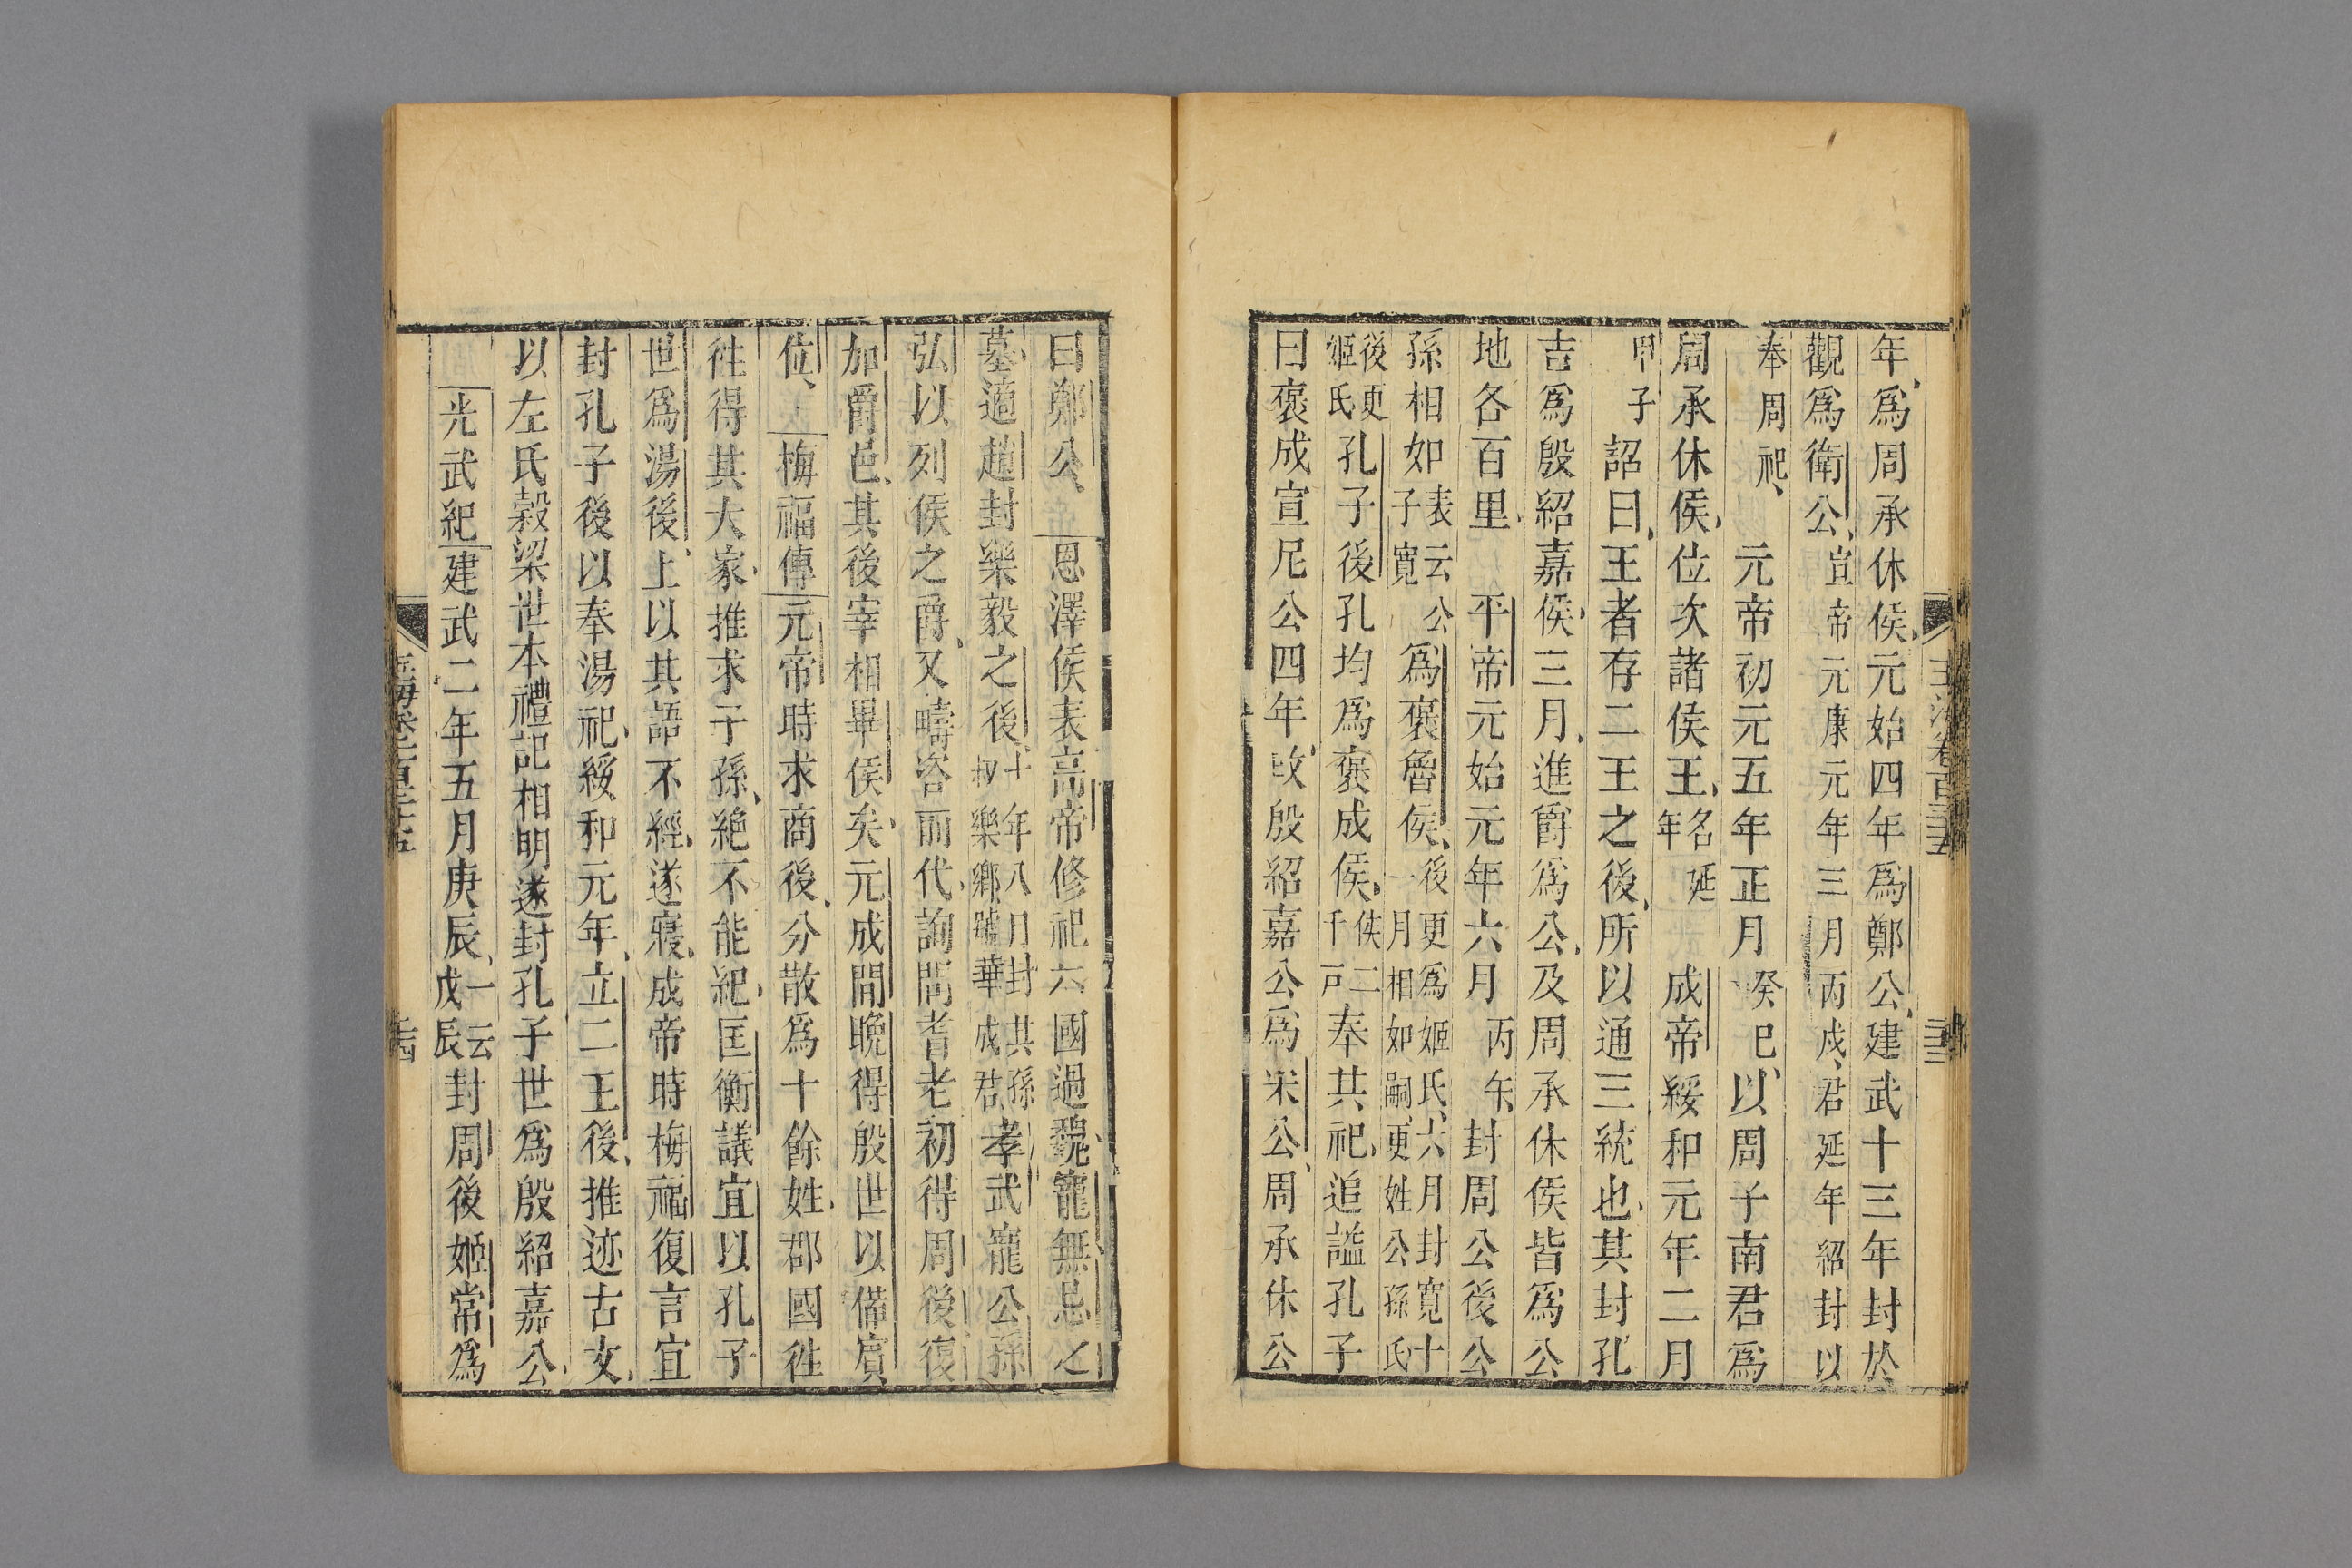 年爲周承休侯元始四年爲鄭公建武十三年封於
觀爲衛公宣帝元康元年三月丙戍君延年紹封以
奉周祀元帝初元五年正月癸巳以周子南君爲
周承休侯位次諸侯王名延年成帝綏和元年二月
甲子詔曰王者存二王之後所以通三統也其封孔
吉爲殷紹嘉侯三月進爵爲公及周承休侯皆爲公
地各百里平帝元始元年六月丙午封周公後公
孫相如表云公子寛爲褒魯侯後更爲姬氏六月封寛十一月相如嗣更姓公孫氏
後更姬氏孔子後孔均爲褒成侯侯二千戸奉其祀追諡孔子
曰褒成宣尼公四年改殷紹嘉公爲宋公周承休公
曰鄭公恩澤侯表高帝修祀六國過魏寵無忌之
墓適趙封樂毅之後十年八月封其孫叔樂鄉號華成君孝武寵公孫
弘以列侯之爵又疇咨而代詢問耆老初得周後復
加爵邑其後宰相畢侯矣元成間晚得殷世以備賓
位梅福傳元帝時求商後分散爲十餘姓郡國徃
徃得其大家推求子孫絶不能紀匡衡議宜以孔子
世爲湯後上以其語不經遂寢成帝時梅福復言宜
封孔子後以奉湯祀綏和元年立二王後推迹古文
以左氏穀梁世本禮記相明遂封孔子世爲殷紹嘉公
光武紀建武二年五月庚辰一云戊辰封周後姬常爲